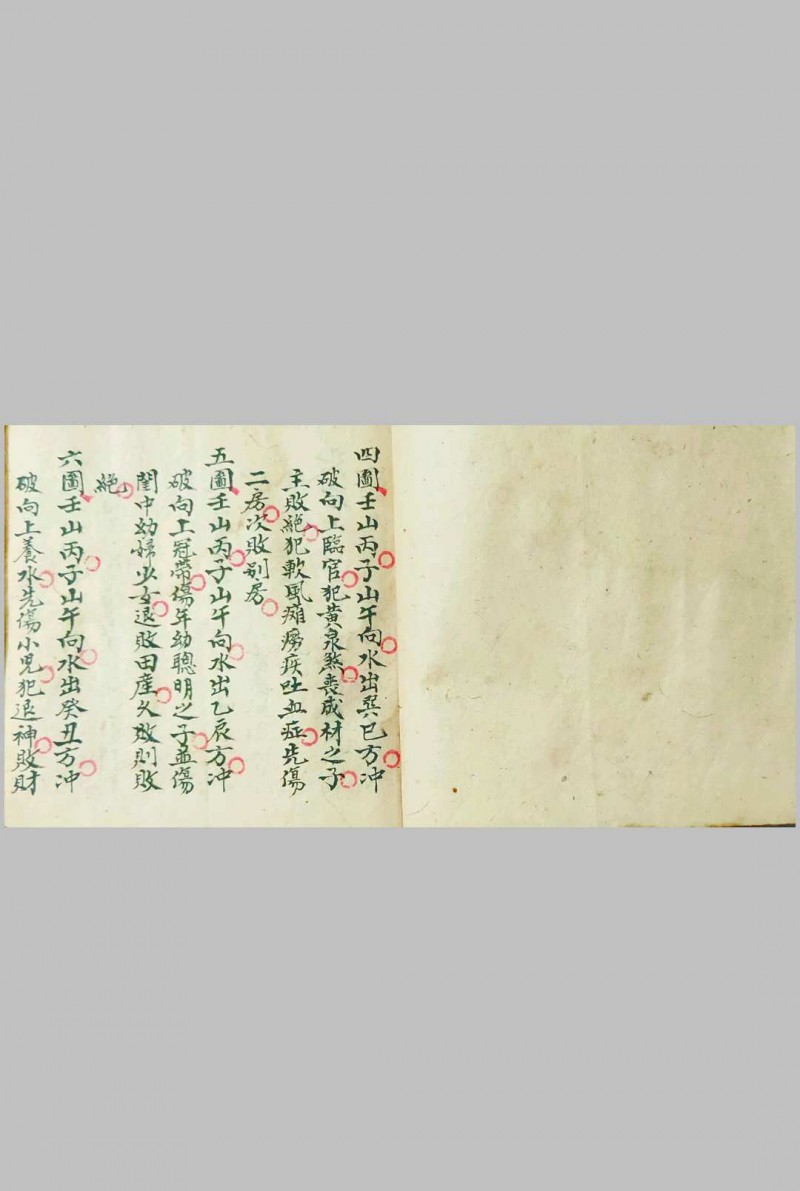 四圖壬山丙子山午向水出巽巳方冲
破向上臨官犯黃泉煞喪成材之子
主敗絕犯軟風癱癆疾吐血症先傷
二房次敗別房
五圖壬山丙子山午向水出乙辰方冲
破向上冠帶傷年幼聰明之子並傷
閨中幼婦少女退敗田產久敗則敗
絕
六圖壬山丙子山午向水出癸丑方冲
破向上養水先傷小兒犯退神敗財